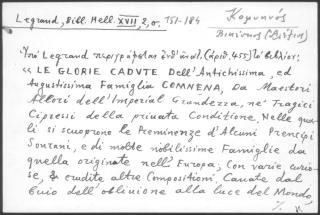 Legrand, Bibl. Hell. XVII, 2, σ. 151-184
Κομνηνός
Βισσίωνος (Βιβίων)
Ὑπό Legrand περιγράφεται ἐνθ' ἀνωτ. (ἀριθ. 455) τό βιβλίον:
« LE GLORIE CADUTE Dell'Antichissima, ed
Augustissima Famiglia COMNENA, Da Maestosi
Allori dell'Imperial Grandezza, ne' Tragici
Cipressi della priuata Conditione. Nelle qua-
li si scuoprono le Preminenze d'Alcuni Prencipi
Sourani, e di molte nobilissime Famiglie da
quella originate nell'Europa, Con varie curio-
se, & erudite altre Compositioni, Cauate dal
buio dell'obliuione alla luce del Mondo,